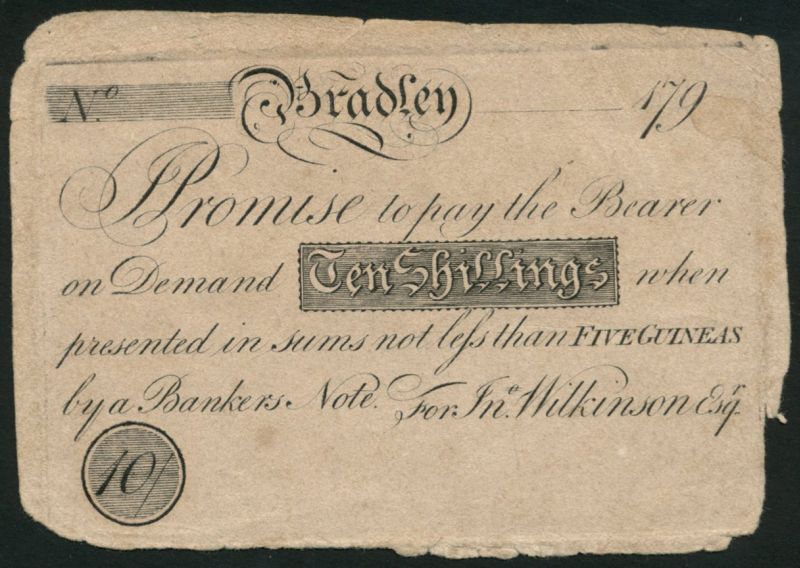 No. Bradley 179
I Promise to pay the Bearer
on Demand Ten Shillings when
presented in sums not leſs than FIVE GUINEAS
by a Bankers Note. For Jno. Wilkinson Esqr.
10/